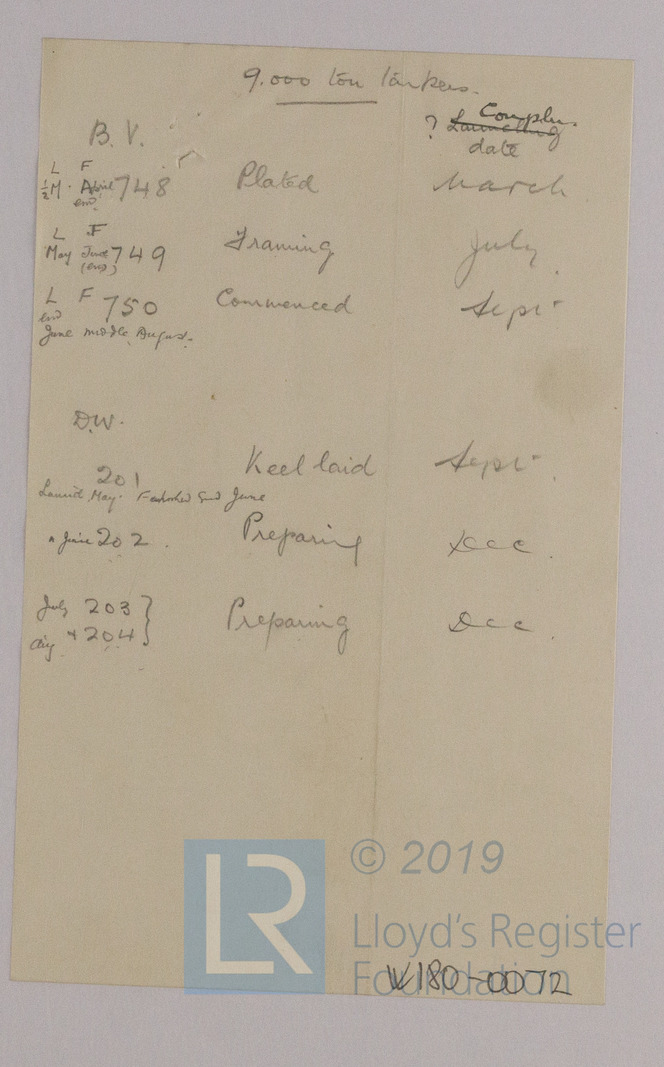 9.000 ton tankers.
? Launching Compln.
date
B. V.
L F
½ M. April 748 Plated March
end.
L F
May June 749 Framing July.
(end)
L F 750 Commenced Sept
end
June middle August.
D.W.
201 Keel laid Sept.
Launch May. Finished End June
" June 202. Preparing Dec.
July 203 }
Aug + 204 } Preparing Dec.
© 2019
LR
Lloyd's Register
Foundation
W180-0072